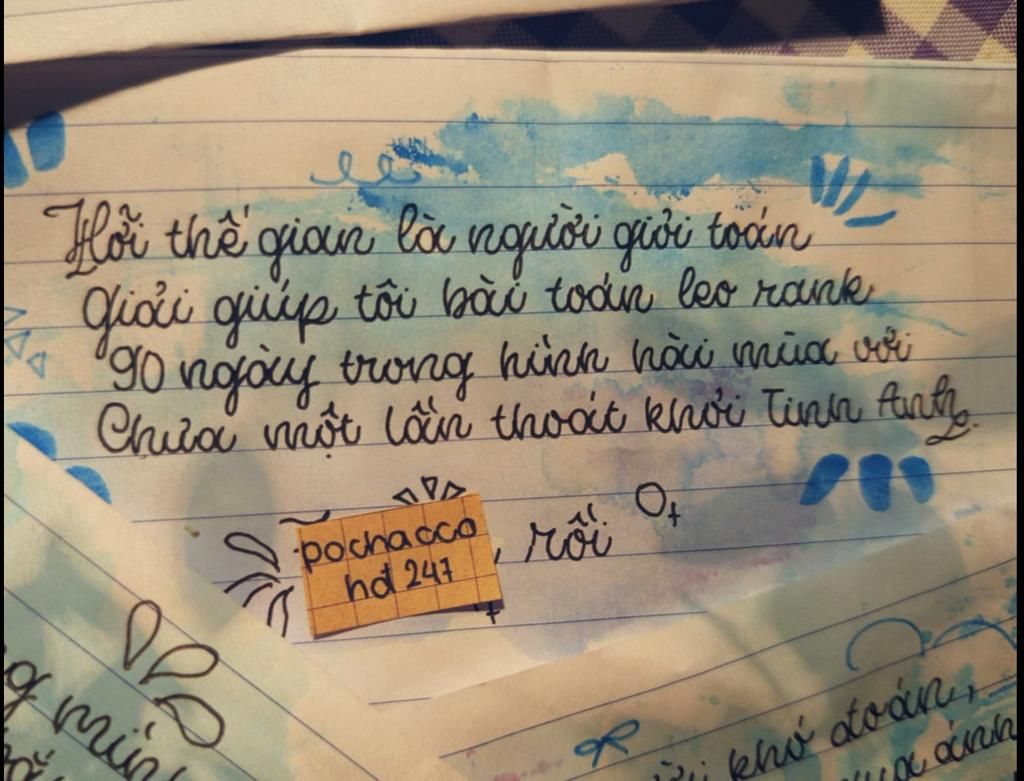 Hỡi thế gian là người giỏi toán
Giải giúp tôi bài toán leo rank
90 ngày trong hình hài mùa với
Chưa một lần thoát khỏi Tinh Anh
pochacco
hd 247
, rối
khó đoán,